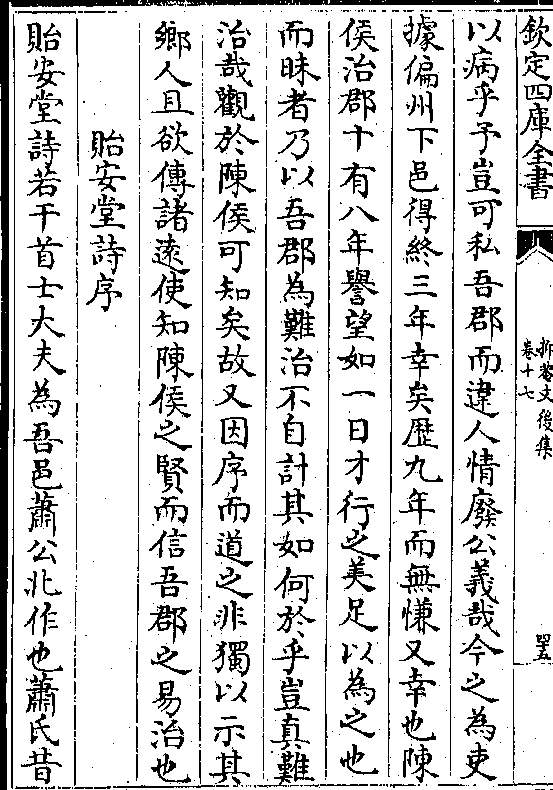 欽定四庫全書
抑菴文後集
卷十七
四五
以病乎予豈可私吾郡而違人情廢公義哉今之為吏
據偏州下邑得終三年幸矣歴九年而無慊又幸也陳
侯治郡十有八年譽望如一日才行之美足以為之也
而昧者乃以吾郡為難治不自計其如何於乎豈真難
治哉觀於陳侯可知矣故又因序而道之非獨以示其
鄉人且欲傳諸逺使知陳侯之賢而信吾郡之易治也
貽安堂詩序
貽安堂詩若干首士大夫為吾邑蕭公兆作也蕭氏昔